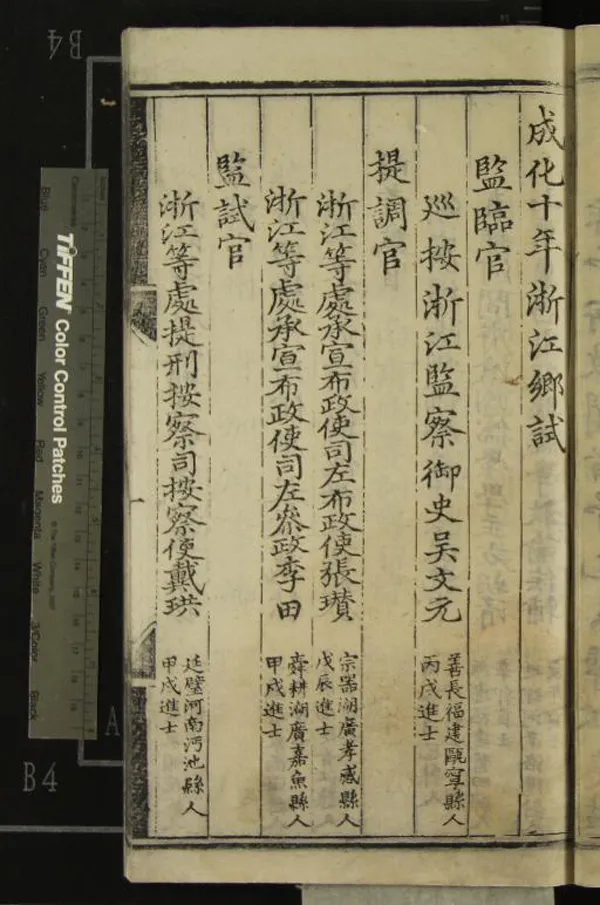 成化十年浙江鄉試
監臨官
巡按浙江監察御史吳文元
善長福建甌寧縣人
丙戌進士
提調官
浙江等處承宣布政使司左布政使張瓚
宗器湖廣孝感縣人
戊辰進士
浙江等處承宣布政使司左叅政李田
舜耕湖廣嘉魚縣人
甲戌進士
監試官
浙江等處提刑按察司按察使戴珙
廷璧河南沔池縣人
甲戌進士
一
B4
B4
A
TIFFEN Color Control Patches
Blue
Cyan
Green
Yellow
Red
Magenta
White
3/Color
Black